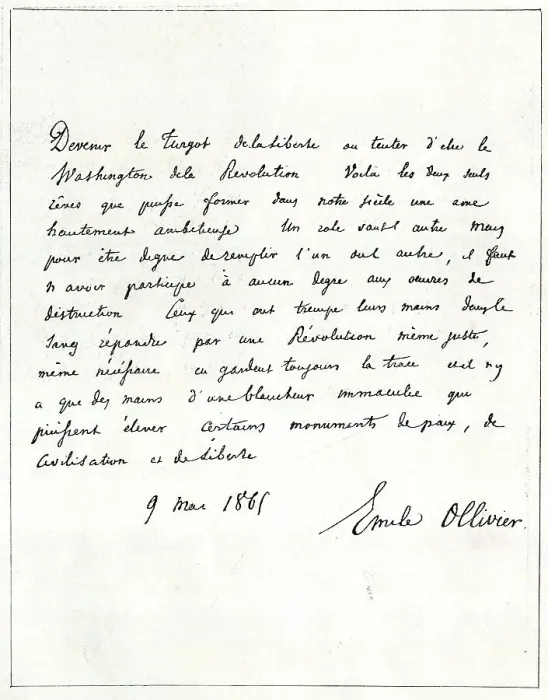 Devenir le Turgot de la Liberte ou tenter d'etre le
Washington de la Revolution Voilà les deux seuls
rêves que puisse former dans notre siècle une ame
hautement ambitieuse Un role vaut l autre Mais
pour être digne de remplir l'un ou l autre, il faut
n avoir participe à aucun degre aux oeuvres de
destruction Ceux qui ont trempe leurs mains dans le
sang répandu par une Révolution même juste,
même nécessaire en gardent toujours la trace et il n y
a que des mains d'une blancheur immaculee qui
puissent élever certains monuments de paix, de
civilisation et de Liberte
9 Mai 1865
Emile Ollivier.